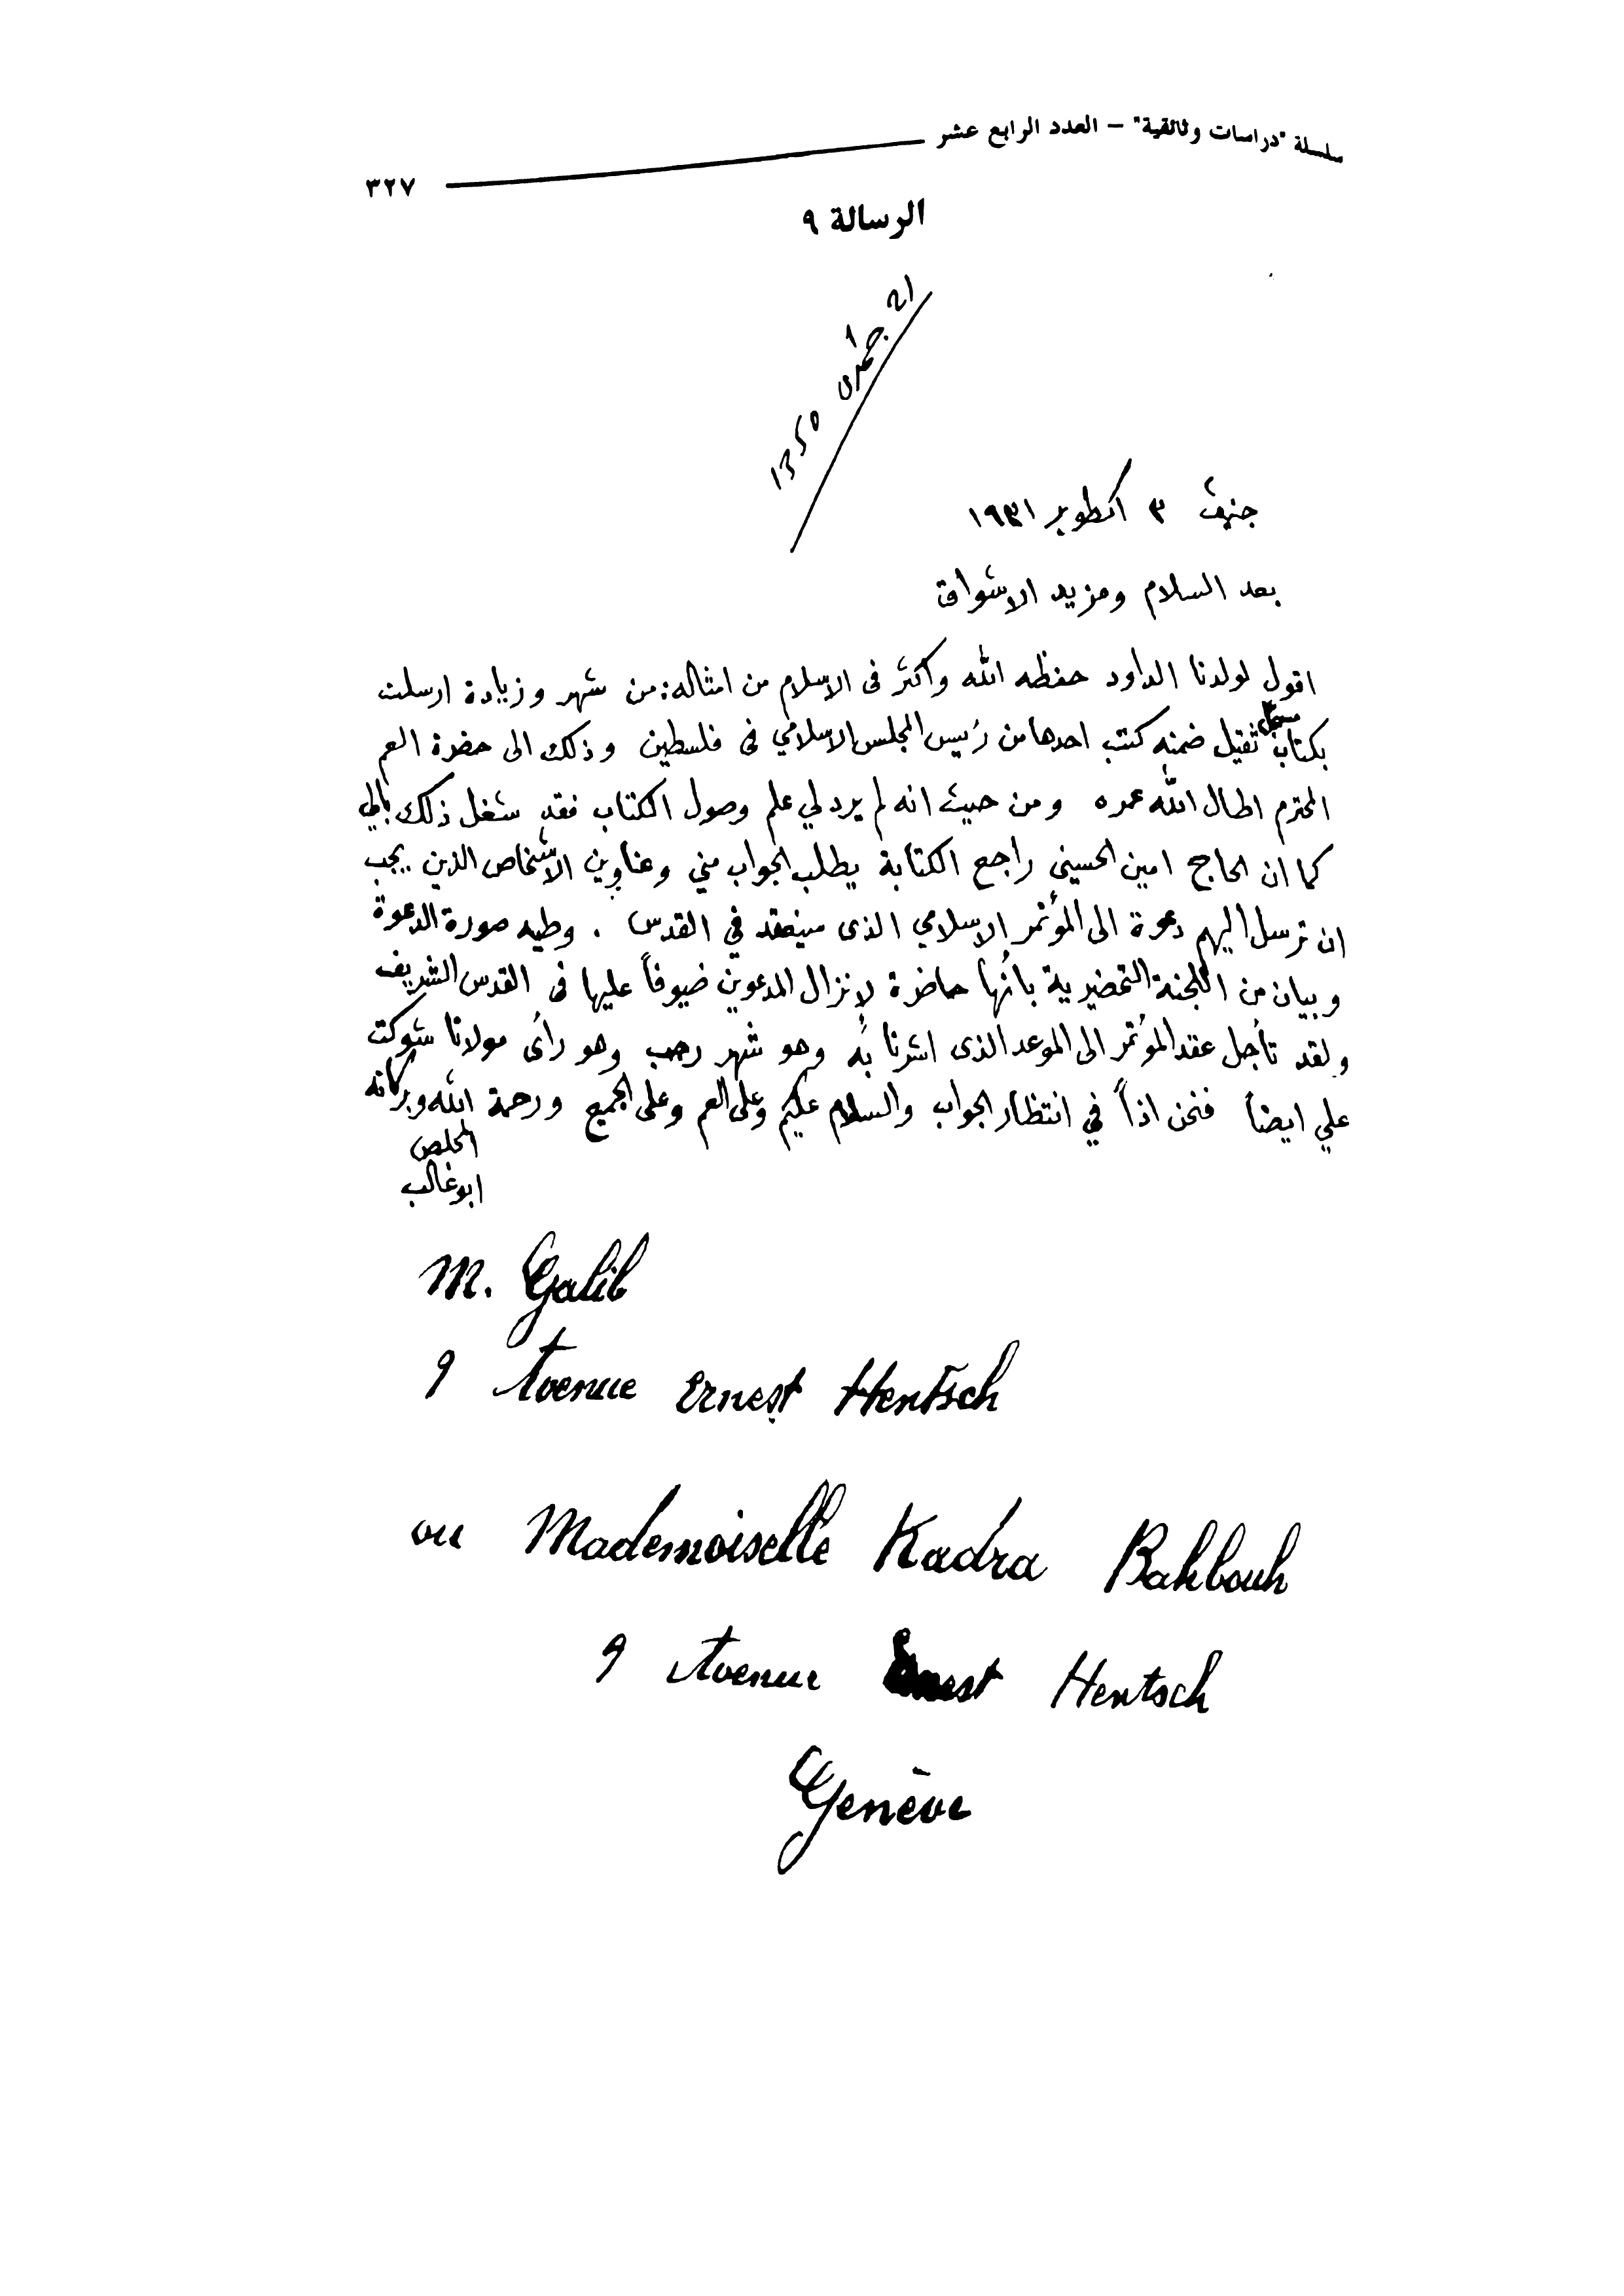 سلسلة "دراسات وثائقية" – العدد الرابع عشر
٣٢٧
الرسالة ٩
21 جمدى 1 1350
جنيف ٣ اكطوبر ١٩٣١
بعد السلام ومزيد الاشواق
اقول لولدنا الداود حفظه الله واكثر فى الاسلام من امثاله: من شهر وزيادة ارسلت
بكتاب مسجل ثقيل ضمنه كتب احدها من رئيس المجلس الاسلامي فى فلسطين وذلك الى حضرة العم
المحترم اطال الله عمره ومن حيث انه لم يرد لي علم وصول الكتاب فقد شغل ذلك بالي
كما ان الحاج امين الحسينى راجع الكتابة يطلب الجواب مني وعناوين الاشخاص الذين يجب
ان ترسل اليهم دعوة الى المؤتمر الاسلامي الذى سينعقد في القدس . وطيه صورة الدعوة
وبيان من اللجنة التحضيرية بأنها حاضرة لإنزال المدعوين ضيوفاً عليها فى القدس الشريف
ولقد تأجل عقد المؤتمر الى الموعد الذى اشرنا به وهو شهر رجب وهو رأى مولانا شوكت
علي ايضاً فنحن اذاً في انتظار الجواب والسلام عليكم وعلى العم وعلى الجميع ورحمة الله وبركاته
المخلص
ابو غالب
M. Galib
9 Avenue Ernest Hentsch
ou Mademoiselle Kadra Bahbouh
9 Avenue Ernest Hentsch
Genève